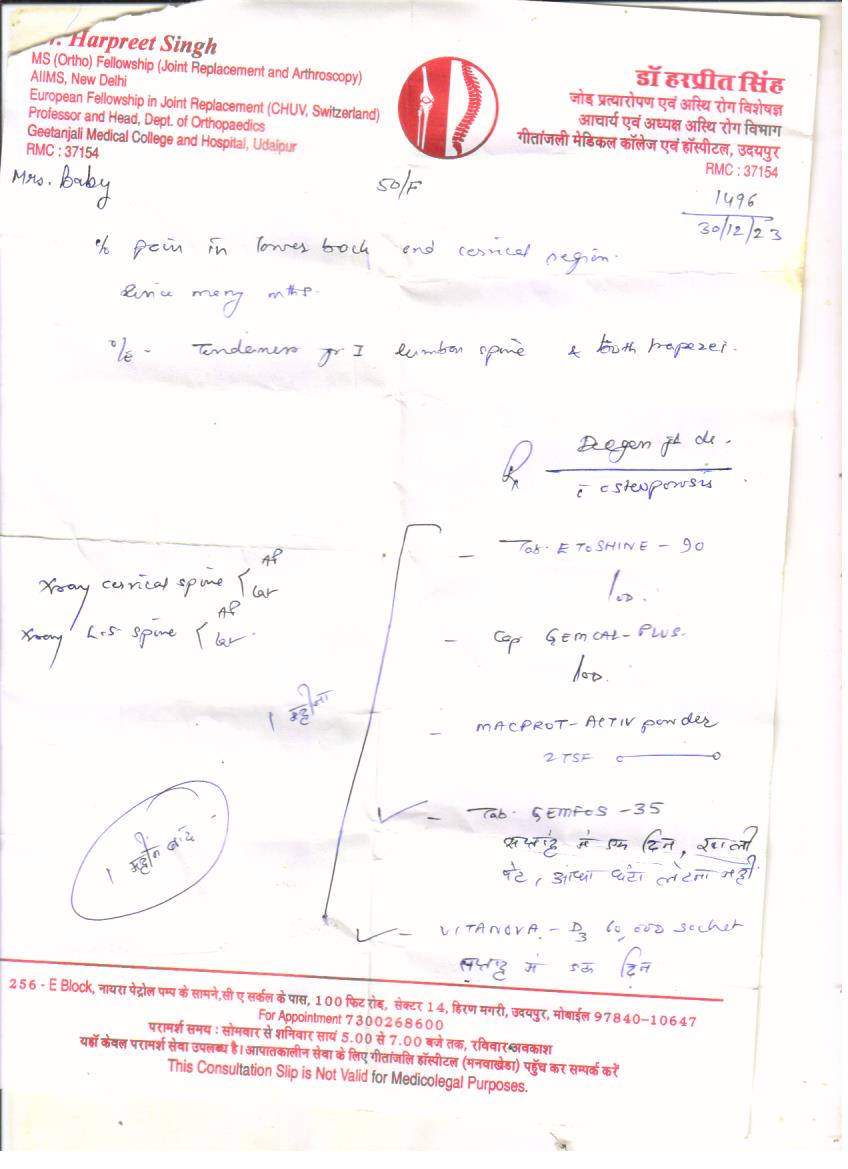 Dr. Harpreet Singh
MS (Ortho) Fellowship (Joint Replacement and Arthroscopy)
AIIMS, New Delhi
European Fellowship in Joint Replacement (CHUV, Switzerland)
Professor and Head, Dept. of Orthopaedics
Geetanjali Medical College and Hospital, Udaipur
RMC : 37154
डॉ हरप्रीत सिंह
जोड़ प्रत्यारोपण एवं अस्थि रोग विशेषज्ञ
आचार्य एवं अध्यक्ष अस्थि रोग विभाग
गीतांजली मेडिकल कॉलेज एवं हॉस्पीटल, उदयपुर
RMC : 37154
Mrs. Baby 50/F
1496
30/12/23
c/o pain in lower back and cervical region.
Since many mths.
o/E - Tenderness lumbar spine & both trapezei.
Degen jt de.
c osteoporosis
Xray cervical spine { AP Lat
Xray L-S spine { AP Lat
- Tab. ETOSHINE - 90
1 OD.
- Cap GEMCAL-PLUS.
1 OD.
1 महीना
- MACPROT-ACTIV powder
2 TSF
- Tab. GEMFOS - 35
सप्ताह में एक दिन, खाली
पेट, आधा घंटा लेटना नहीं
1 महीने बाद
- VITANOVA - D3 60,000 sachet
सप्ताह में एक दिन
256 - E Block, नायरा पेट्रोल पम्प के सामने,सी ए सर्कल के पास, 100 फिट रोड, सेक्टर 14, हिरण मगरी, उदयपुर, मोबाईल 97840-10647
For Appointment 7300268600
परामर्श समय : सोमवार से शनिवार सायं 5.00 से 7.00 बजे तक, रविवार अवकाश
यहाँ केवल परामर्श सेवा उपलब्ध है। आपातकालीन सेवा के लिए गीतांजलि हॉस्पीटल (मनवाखेडा) पहुँच कर सम्पर्क करें
This Consultation Slip is Not Valid for Medicolegal Purposes.